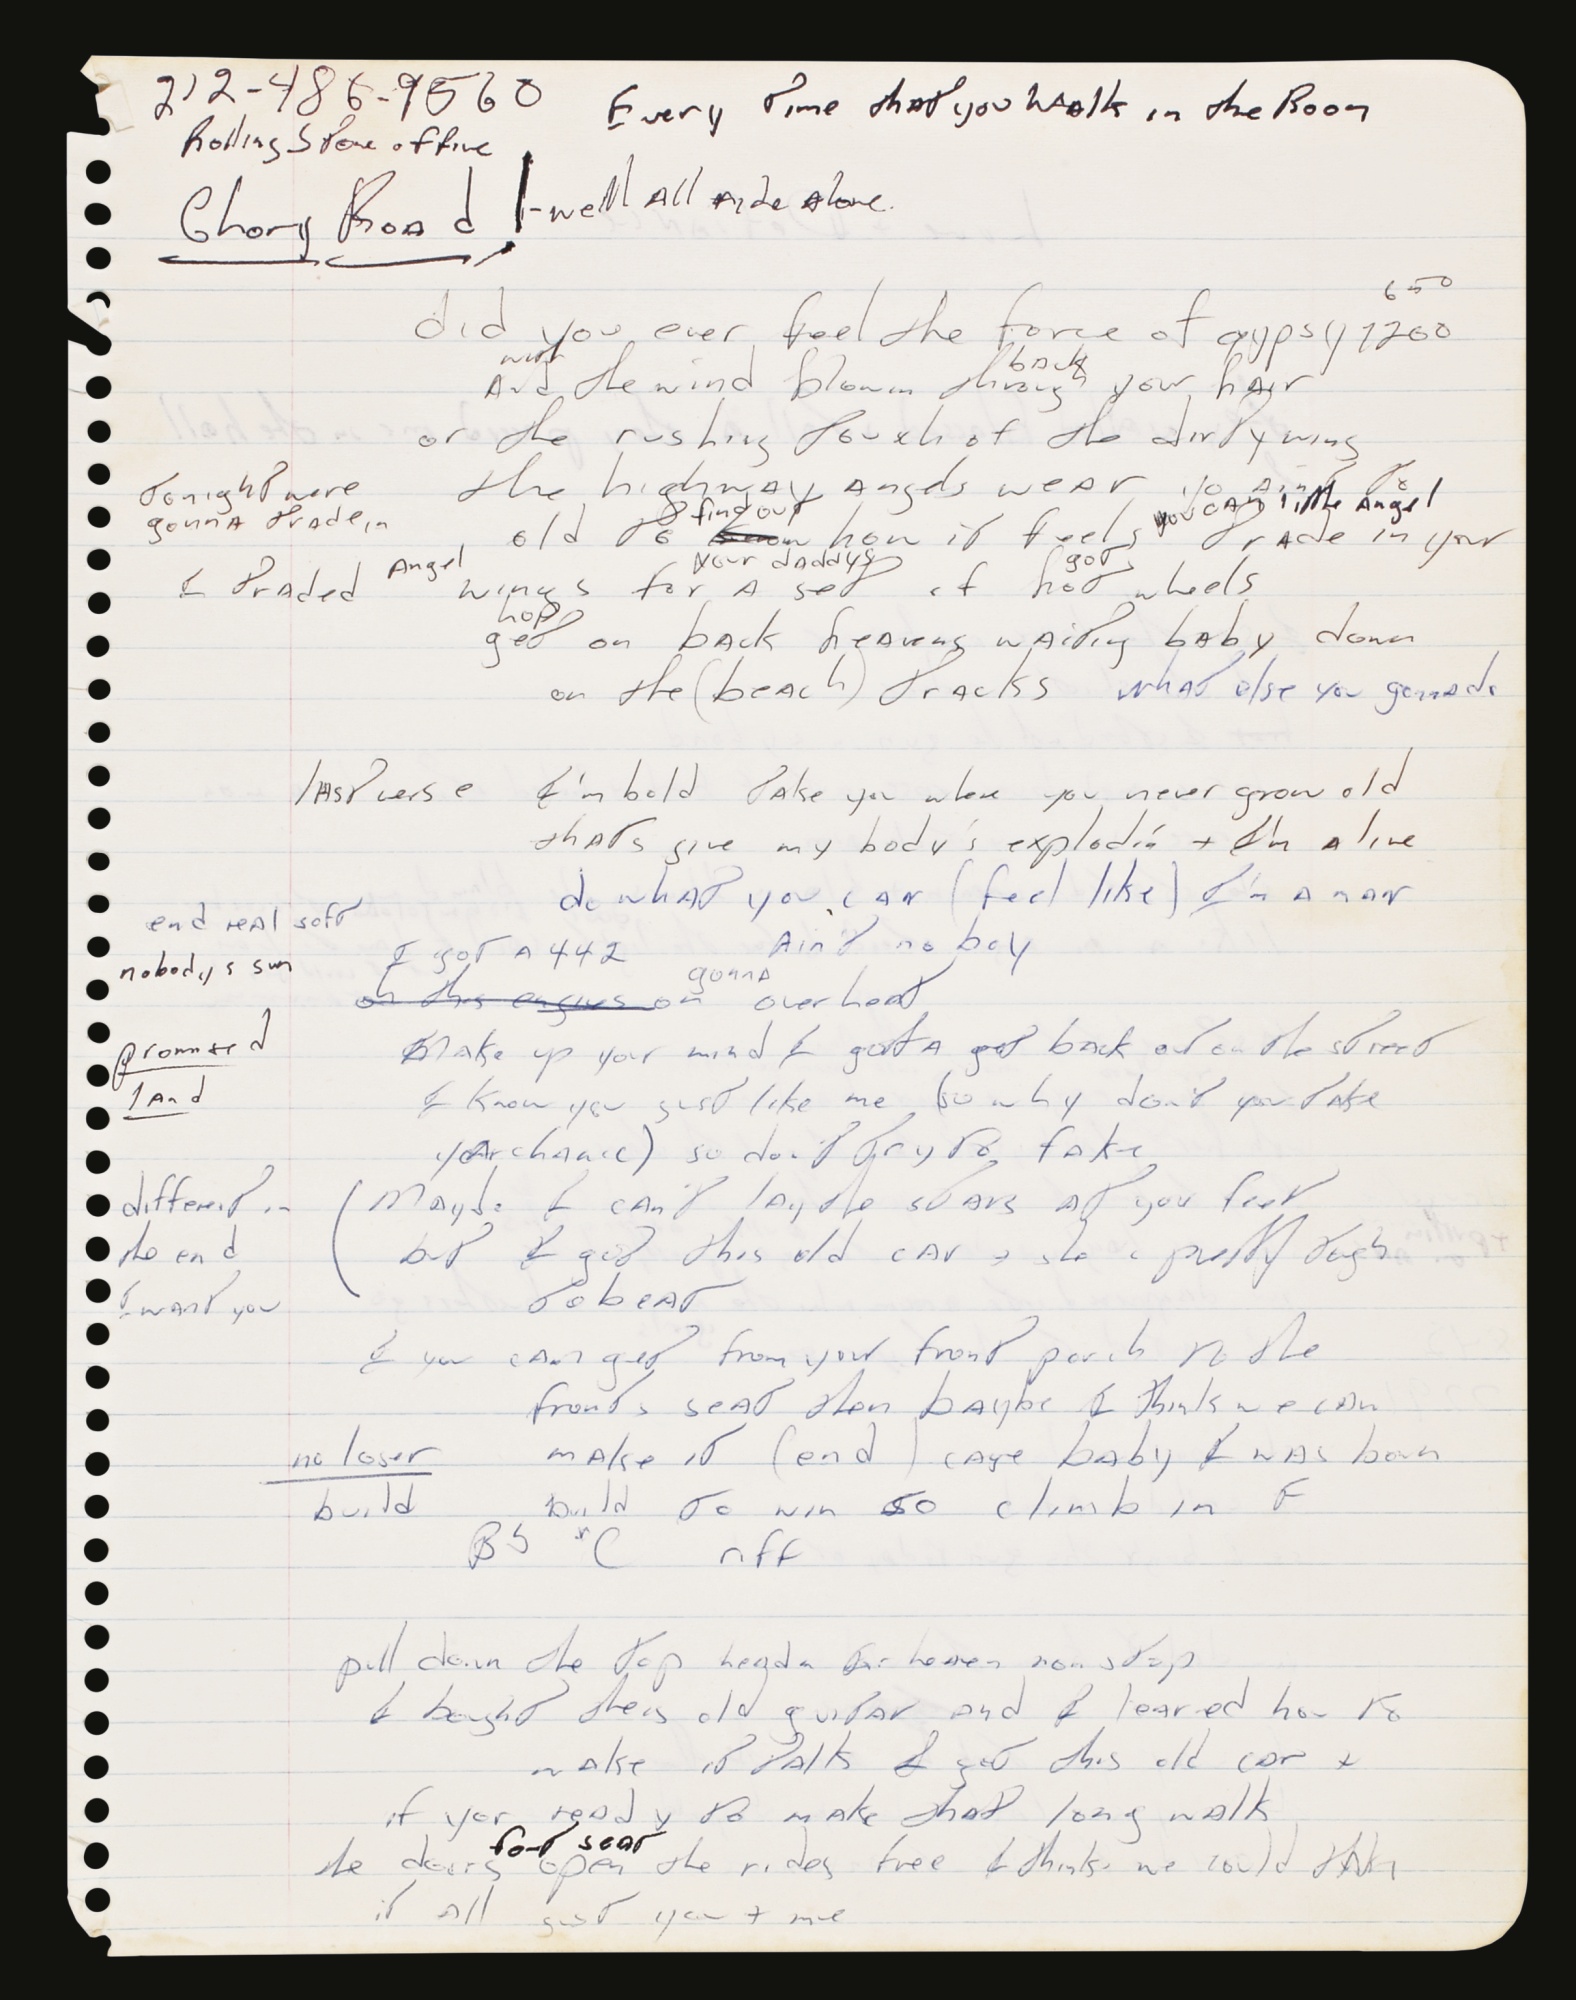 212-486-9560
Rolling Stone office
Every time that you walk in the Room
Glory Road
- we'll all ride alone.
650
did you ever feel the force of gypsy 1200
with back
And the wind blown through your hair
or the rushing touch of the dirty wing
the highway angels wear yo ain't to
Tonight were
gonna trade in
find out you can little Angel
old to know how it feels trade in your
your daddys got
I traded Angel wings for a set of hot wheels
hop
get on back heavens waiting baby down
on the (beach) tracks what else you gonna do
last verse I'm bold take you where you never grow old
thats give my body's explodin + I'm alive
do what you can (feel like) I'm a man
end real soft
nobodys sun
I got a 442 Ain't no boy
gonna
oh this engines on overheat
promised
land
Make up your mind I gotta get back out on the street
I know you just like me (so why don't you take
your chance) so don't try to fake
different in
the end
I want you
(Maybe I can't lay the stars at you feet
but I got this old car + she s pretty tough
to beat
I you can get from your front porch to the
fronts seat then baybe I think we can
no loser
make it (end) cage baby I was born
build
build to win so climb in F
riff
pull down the top heada for heaven non stop
I bought this old guitar and I learned how to
make it talk I got this old car +
if your ready to make that long walk
seat
the doors open the rides free I think we could take
it all just you + me